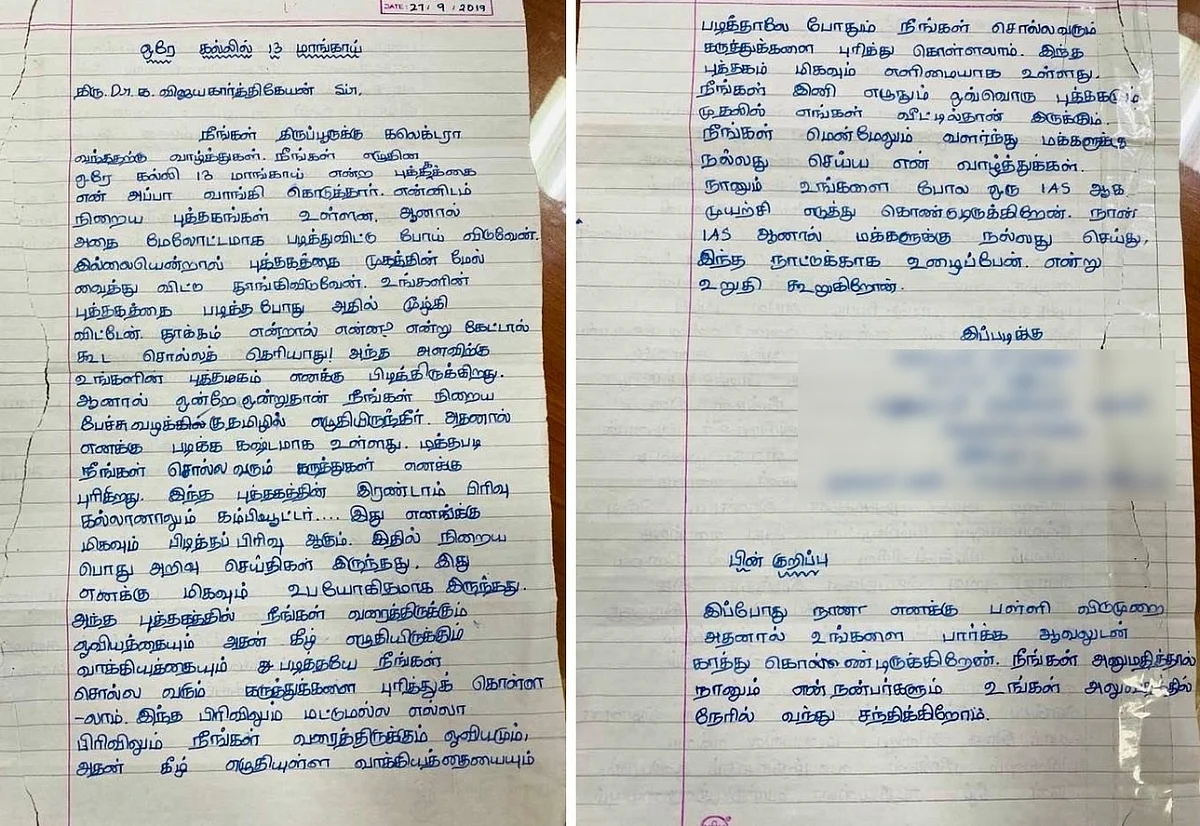 DATE: 27 / 9 / 2019
ஒரே கல்லில் 13 மாங்காய்
திரு. Dr. க. விஜயகார்த்திகேயன் Sir,
நீங்கள் திருப்பூருக்கு கலெக்டரா
வந்ததற்கு வாழ்த்துகள். நீங்கள் எழுதின
ஒரே கல்லி 13 மாங்காய் என்ற புத்தகத்தை
என் அப்பா வாங்கி கொடுத்தார். என்னிடம்
நிறைய புத்தகங்கள் உள்ளன. ஆனால்
அதை மேலோட்டமாக படித்துவிட்டு போய் விடுவேன்.
இல்லையென்றால் புத்தகத்தை முகத்தின் மேல்
வைத்து விட்டு தூங்கிவிடுவேன். உங்களின்
புத்தகத்தை படித்த போது அதில் மூழ்கி
விட்டேன். தூக்கம் என்றால் என்ன? என்று கேட்டால்
கூட சொல்லத் தெரியாது! அந்த அளவிற்கு
உங்களின் புத்தமகம் எனக்கு பிடித்திருக்கிறது.
ஆனால் ஒன்றே ஒன்றுதான் நீங்கள் நிறைய
பேச்சு தமிழில் எழுதியிருந்தீர். அதனால்
எனக்கு படிக்க கஷ்டமாக உள்ளது.
நீங்கள் சொல்ல வரும் கருத்துகள் எனக்கு
புரிகிறது. இந்த புத்தகத்தின் இரண்டாம் பிரிவு
கல்லானாலும் கம்பியூட்டர்.... இது எனக்கு
மிகவும் பிடித்தப் பிரிவு ஆகும். இதில் நிறைய
பொது அறிவு செய்திகள் இருந்தது. இது
எனக்கு மிகவும் உபயோகிதமாக இருந்தது.
அந்த புத்தகத்தில் நீங்கள் வரைத்திருக்கும்
ஓவியத்தையும் அதன் கீழ் எழுதியிருக்கும்
வாக்கியத்தையும் படித்தயே நீங்கள்
சொல்ல வரும் கருத்துக்களை புரித்துக் கொள்ள
-லாம். இந்த பிரிவிலும் மட்டுமல்ல எல்லா
பிரிவிலும் நீங்கள் வரைத்திருக்கும் ஓவியமும்,
அதன் கீழ் எழுதியுள்ள வாக்கியத்தையையும்
படித்தாலே போதும் நீங்கள் சொல்லவரும்
கருத்துக்களை புரித்து கொள்ளலாம். இந்த
புத்தகம் மிகவும் எளிமையாக உள்ளது.
நீங்கள் இனி எழுதும் ஒவ்வொரு புத்தகமும்
முதலில் எங்கள் வீட்டில்தான் இருக்கும்.
நீங்கள் மென்மேலும் வளர்ந்து மக்களுக்கு
நல்லது செய்ய என் வாழ்த்துக்கள்.
நானும் உங்களை போல ஒரு IAS ஆக
முயற்சி எடுத்து கொண்டிருக்கிறேன். நான்
IAS ஆனால் மக்களுக்கு நல்லது செய்து,
இந்த நாட்டுக்காக உழைப்பேன். என்று
உறுதி கூறுகிறேன்.
இப்படிக்கு
பின் குறிப்பு
இப்போது எனக்கு பள்ளி விடுமுறை
அதனால் உங்களை பார்க்க ஆவலுடன்
காத்து கொண்டிருக்கிறேன். நீங்கள் அனுமதித்தால்
நானும் என் நன்பர்களும் உங்கள்
நேரில் வந்து சந்திக்கிறோம்.